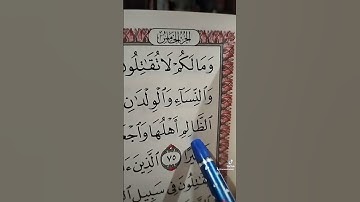 الجزء الخامس
وَمَا لَكُمْ لَا تُقَٰتِلُونَ
وَالنِّسَاءِ وَالْوِلْدَٰنِ
الظَّالِمِ أَهْلُهَا وَاجْعَ
يرًا ٧٥ الَّذِينَ ءَ
يُقَٰتِلُونَ فِي سَبِيلِ ال